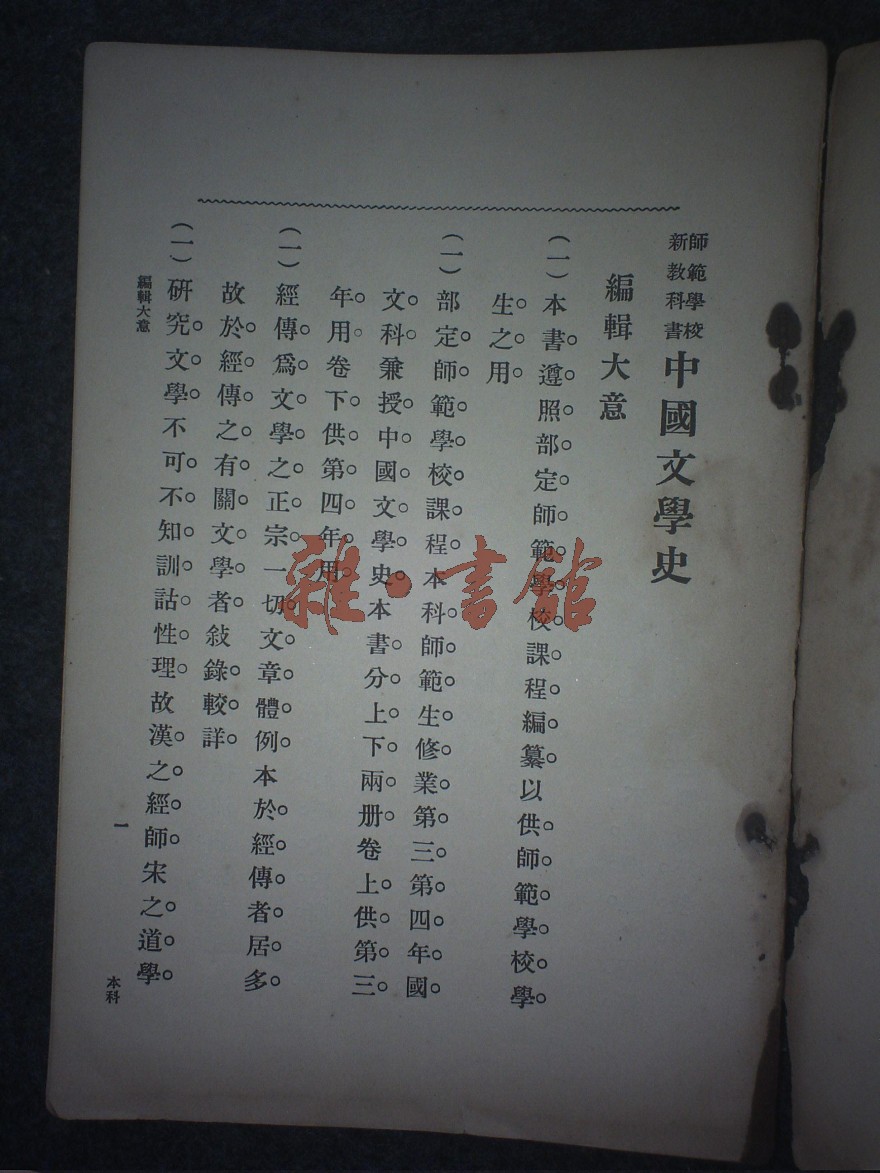 師範學校
新教科書
中國文學史
編輯大意
(一)本書遵照部定師範學校課程編纂以供師範學校學
生之用
(一)部定師範學校課程本科師範生修業第三第四年國
文科兼授中國文學史本書分上下兩册卷上供第三
年用卷下供第四年用
(一)經傳爲文學之正宗一切文章體例本於經傳者居多
故於經傳之有關文學者敍錄較詳
(一)研究文學不可不知訓詁性理故漢之經師宋之道學
編輯大意
一
本科
雜·書館